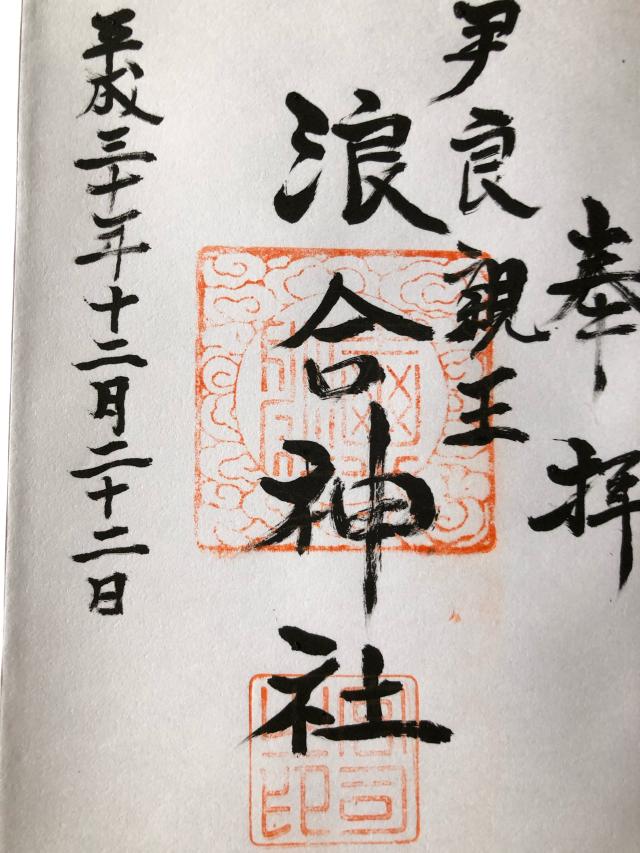 奉拝
尹良親王
浪合神社
平成三十年十二月二十二日
宮司之印